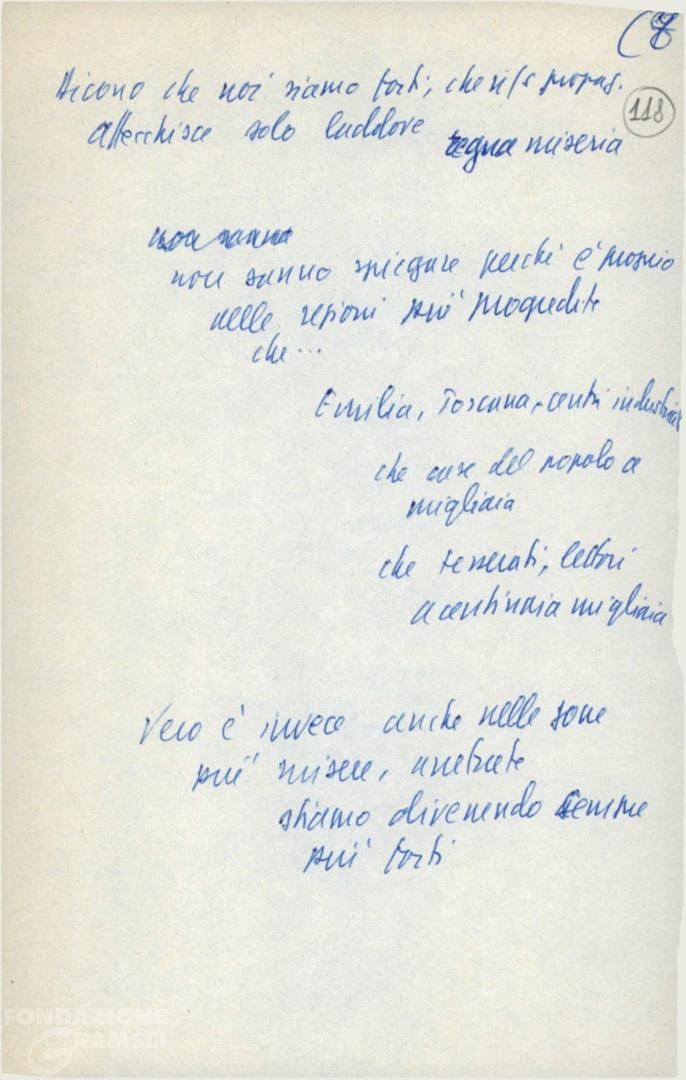 (8
118
Dicono che noi siamo forti, che
attecchisce solo laddove regna miseria
non sanno
non sanno spiegare perché è proprio
nelle regioni più progredite
che...
Emilia, Toscana, centri industriali
che case del popolo a
migliaia
che tesserati, lettori
a centinaia migliaia
Vero è invece anche nelle zone
più misere, arretrate
stiamo divenendo sempre
più forti
FONDAZIONE
GRAMSCI